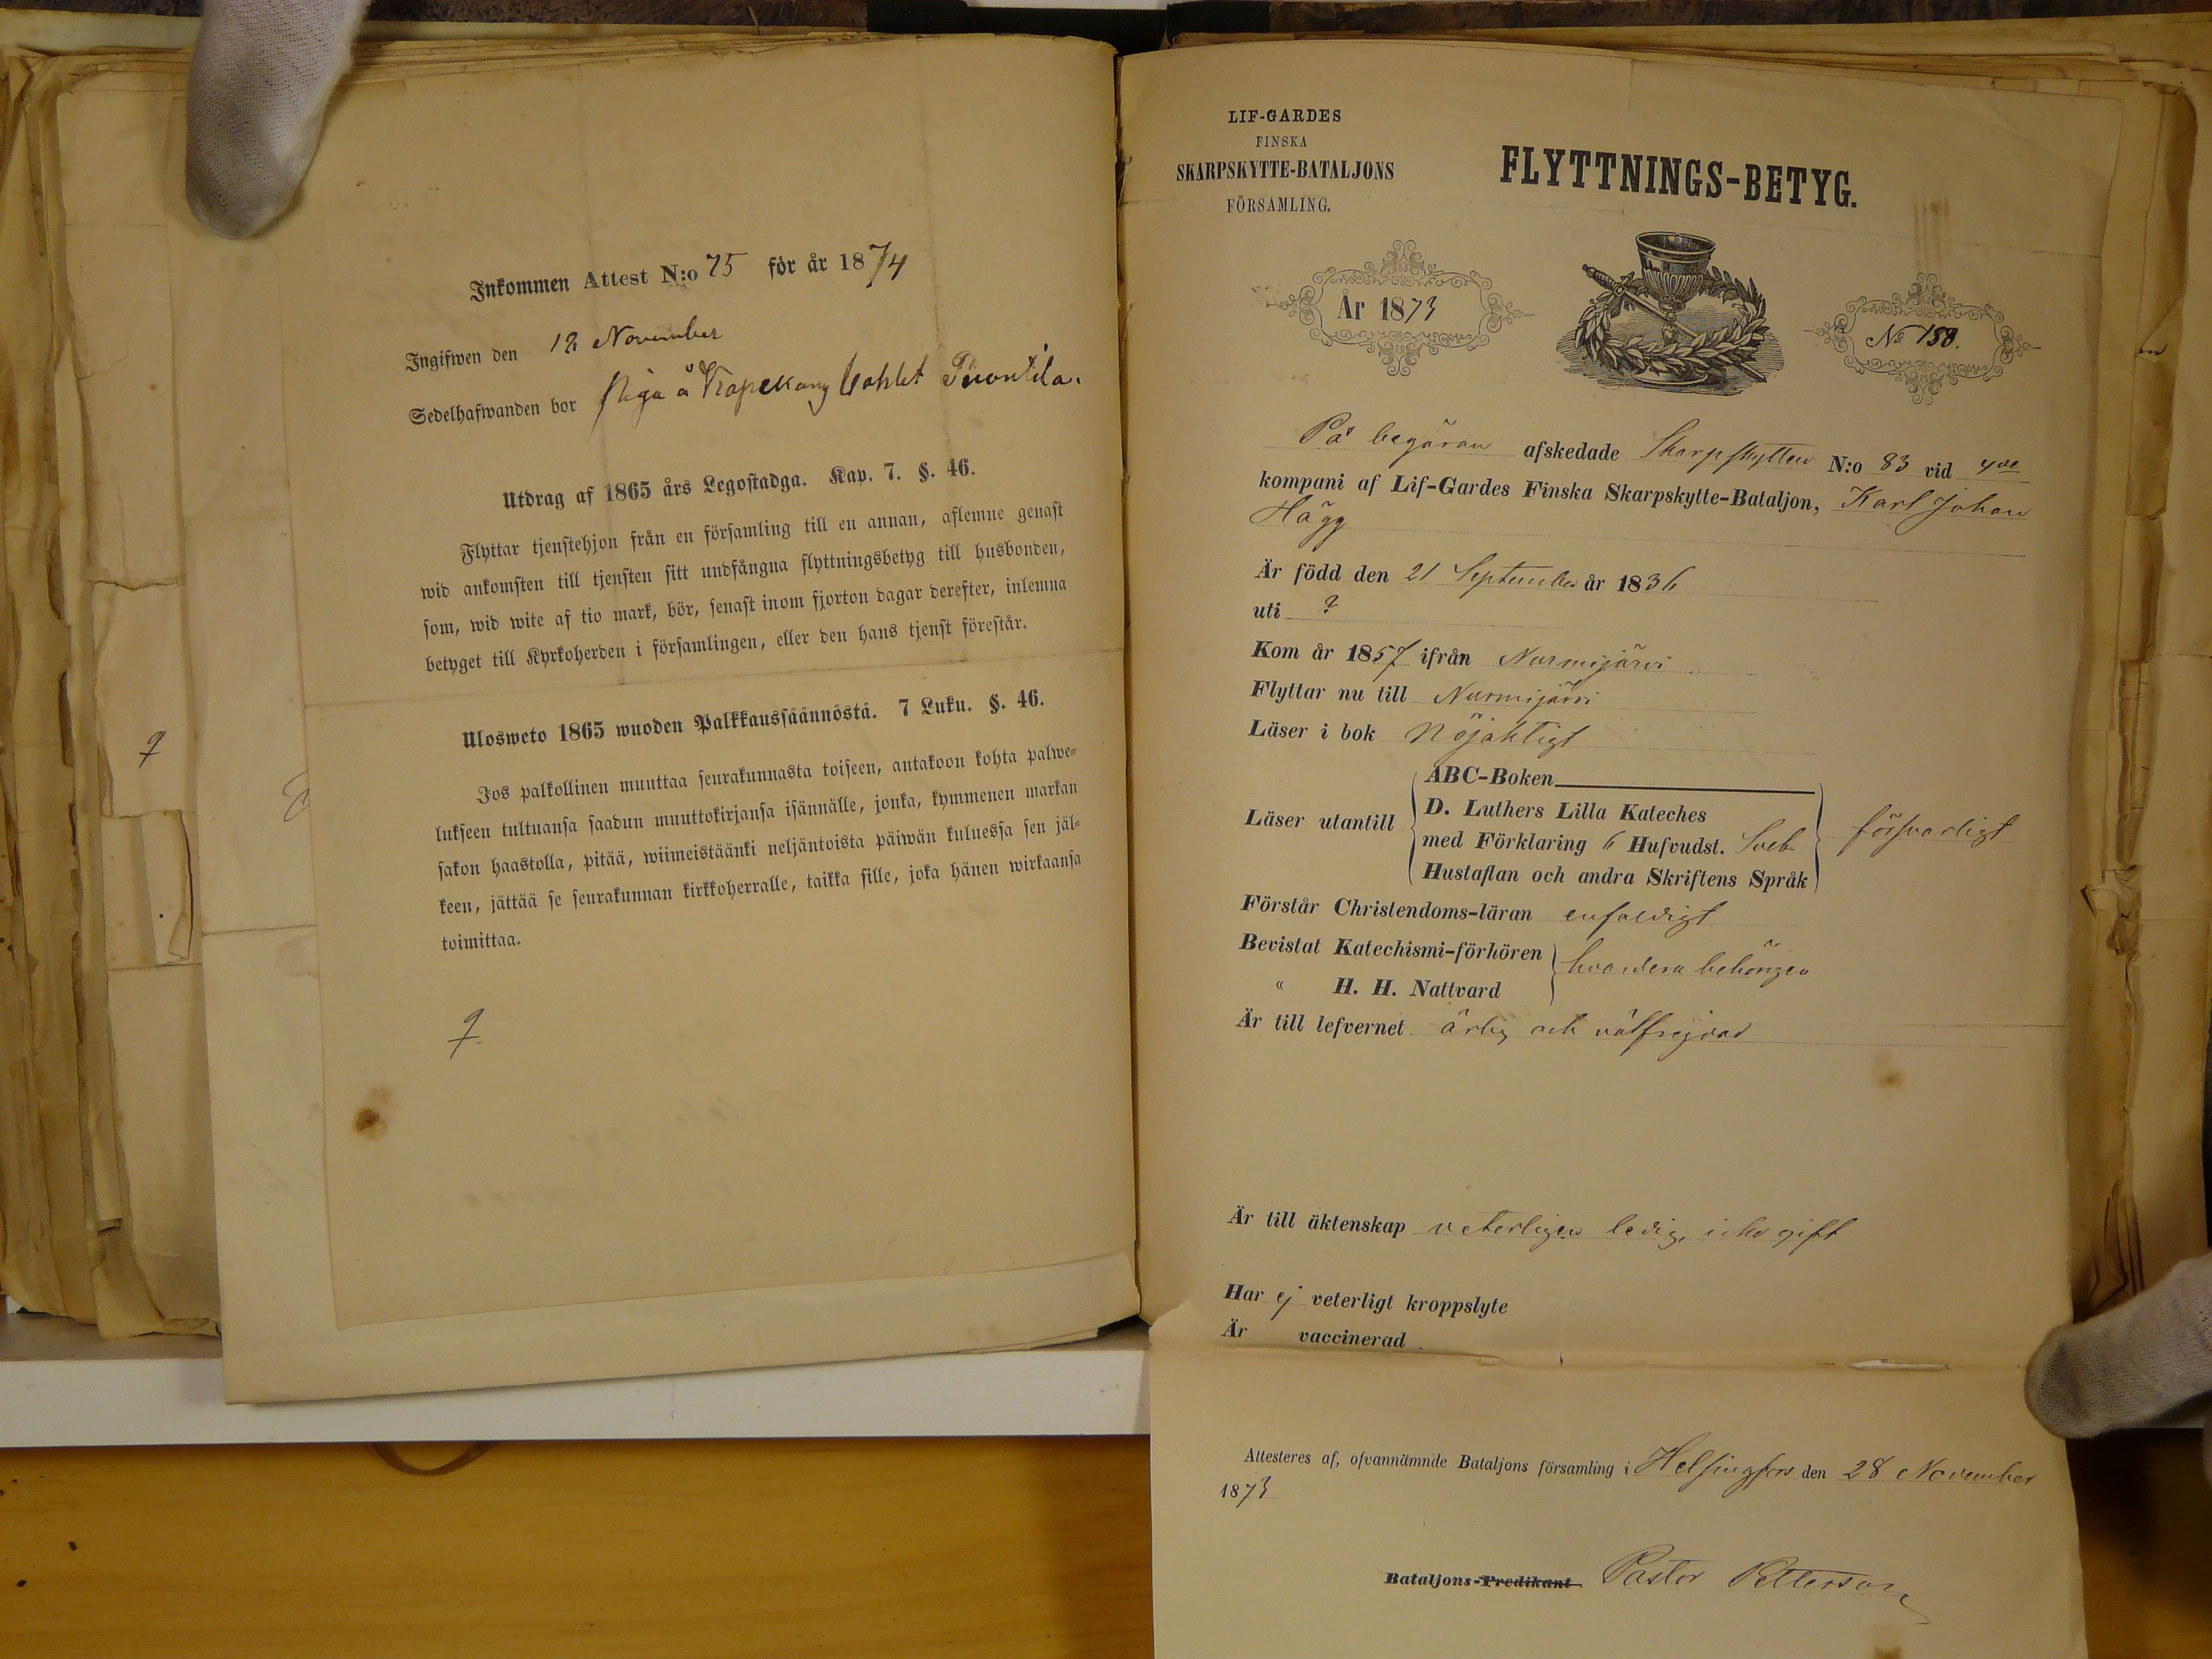 Inkommen Attest N:o 75 för år 1874
Ingifwen den 12 November
Sedelhafwanden bor
Utdrag af 1865 års Legostadga. Kap. 7. §. 46.
Flyttar tjenstehjon från en församling till en annan, aflemne genast
wid ankomsten till tjensten sitt undfångna flyttningsbetyg till husbonden,
som, wid wite af tio mark, bör, senast inom fjorton dagar derefter, inlemna
betyget till Kyrkoherden i församlingen, eller den hans tjenst förestår.
Ulosweto 1865 wuoden Palkkaussäännöstä. 7 Luku. §. 46.
Jos palkollinen muuttaa seurakunnasta toiseen, antakoon kohta palwe-
lukseen tultuansa saadun muuttokirjansa isännälle, jonka, kymmenen markan
sakon haastolla, pitää, wiimeistäänki neljäntoista päiwän kuluessa sen jäl-
keen, jättää se seurakunnan kirkkoherralle, taikka sille, joka hänen wirkaansa
toimittaa.
LIF-GARDES
FINSKA
SKARPSKYTTE-BATALJONS
FÖRSAMLING.
FLYTTNINGS-BETYG.
År 1873
No 158.
På begäran afskedade Skarpskytten N:o 83 vid 4de
kompani af Lif-Gardes Finska Skarpskytte-Bataljon, Karl Johan
Hägg
Är född den 21 September år 1836
uti ?
Kom år 1857 ifrån Nurmijärvi
Flyttar nu till Nurmijärvi
Läser i bok nöjaktigt
Läser utantill
ABC-Boken
D. Luthers Lilla Kateches
med Förklaring 6 Hufvudst. Sveb.
Hustaflan och andra Skriftens Språk
försvarligt
Förstår Christendoms-läran enfaldigt
Bevistat Katechismi-förhören
" H. H. Nattvard
hvardera behörigen
Är till lefvernet ärlig och välfrejdad
Är till äktenskap veterligen ledig, icke gift
Har ej veterligt kroppslyte
Är vaccinerad
Attesteres af, ofvannämnde Bataljons församling i Helsingfors den 28 November
1873
Bataljons-Predikant Pastor Petterson